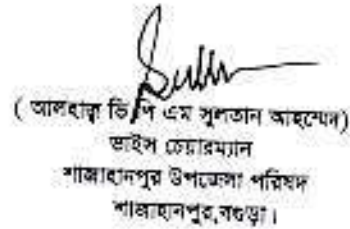 ( আলহাজ্ব ভিপি এম সুলতান আহম্মেদ)
ভাইস চেয়ারম্যান
শাজাহানপুর উপজেলা পরিষদ
শাজাহানপুর,বগুড়া।